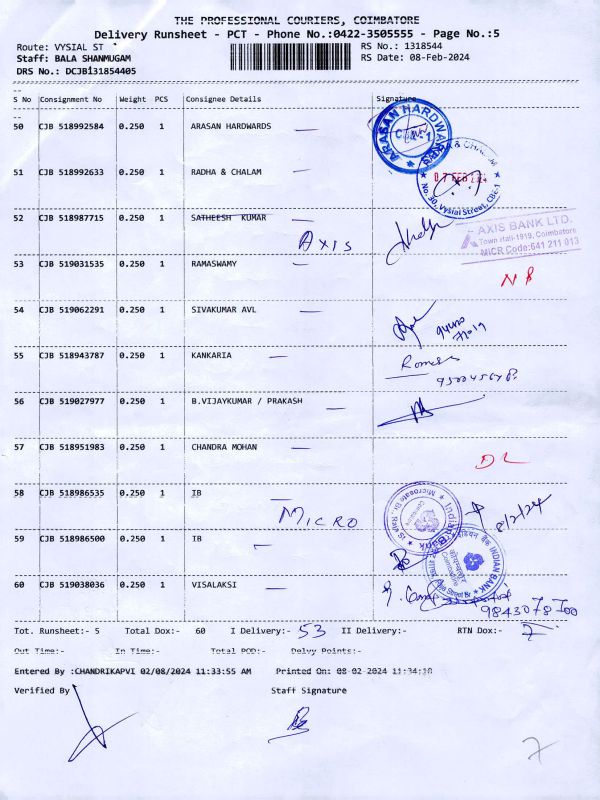 THE PROFESSIONAL COURIERS, COIMBATORE
Delivery Runsheet - PCT - Phone No.:0422-3505555 - Page No.:5
Route: VYSIAL ST
RS No.: 1318544
Staff: BALA SHANMUGAM
RS Date: 08-Feb-2024
DRS No.: DCJB131854405
S No Consignment No Weight PCS Consignee Details Signature
50 CJB 518992584 0.250 1 ARASAN HARDWARDS
ARASAN HARDWARE
51 CJB 518992633 0.250 1 RADHA & CHALAM
No. 30, Vysial Street, CBE-1
52 CJB 518987715 0.250 1 SATHEESH KUMAR
AXIS
AXIS BANK LTD.
Town Hall-1919, Coimbatore
MICR Code:641 211 013
53 CJB 519031535 0.250 1 RAMASWAMY
54 CJB 519062291 0.250 1 SIVAKUMAR AVL
55 CJB 518943787 0.250 1 KANKARIA
56 CJB 519027977 0.250 1 B.VIJAYKUMAR / PRAKASH
57 CJB 518951983 1 0.250 CHANDRA MOHAN
DL
58 CJB 518986535 0.250 1 IB
MICRO
Indian Bank
8/2/24
59 CJB 518986500 0.250 1 IB
इंडियन बैंक INDIAN BANK
60 CJB 519038036 0.250 1 VISALAKSI
9843078700
Tot. Runsheet:- 5 Total Dox:- 60 I Delivery:- 53 II Delivery:- RTN Dox:- 7
Out Time:- In Time:- Total POD:- Delvy Points:-
Entered By :CHANDRIKAPVI 02/08/2024 11:33:55 AM Printed On: 08-02-2024 11:34:18
Verified By Staff Signature
7